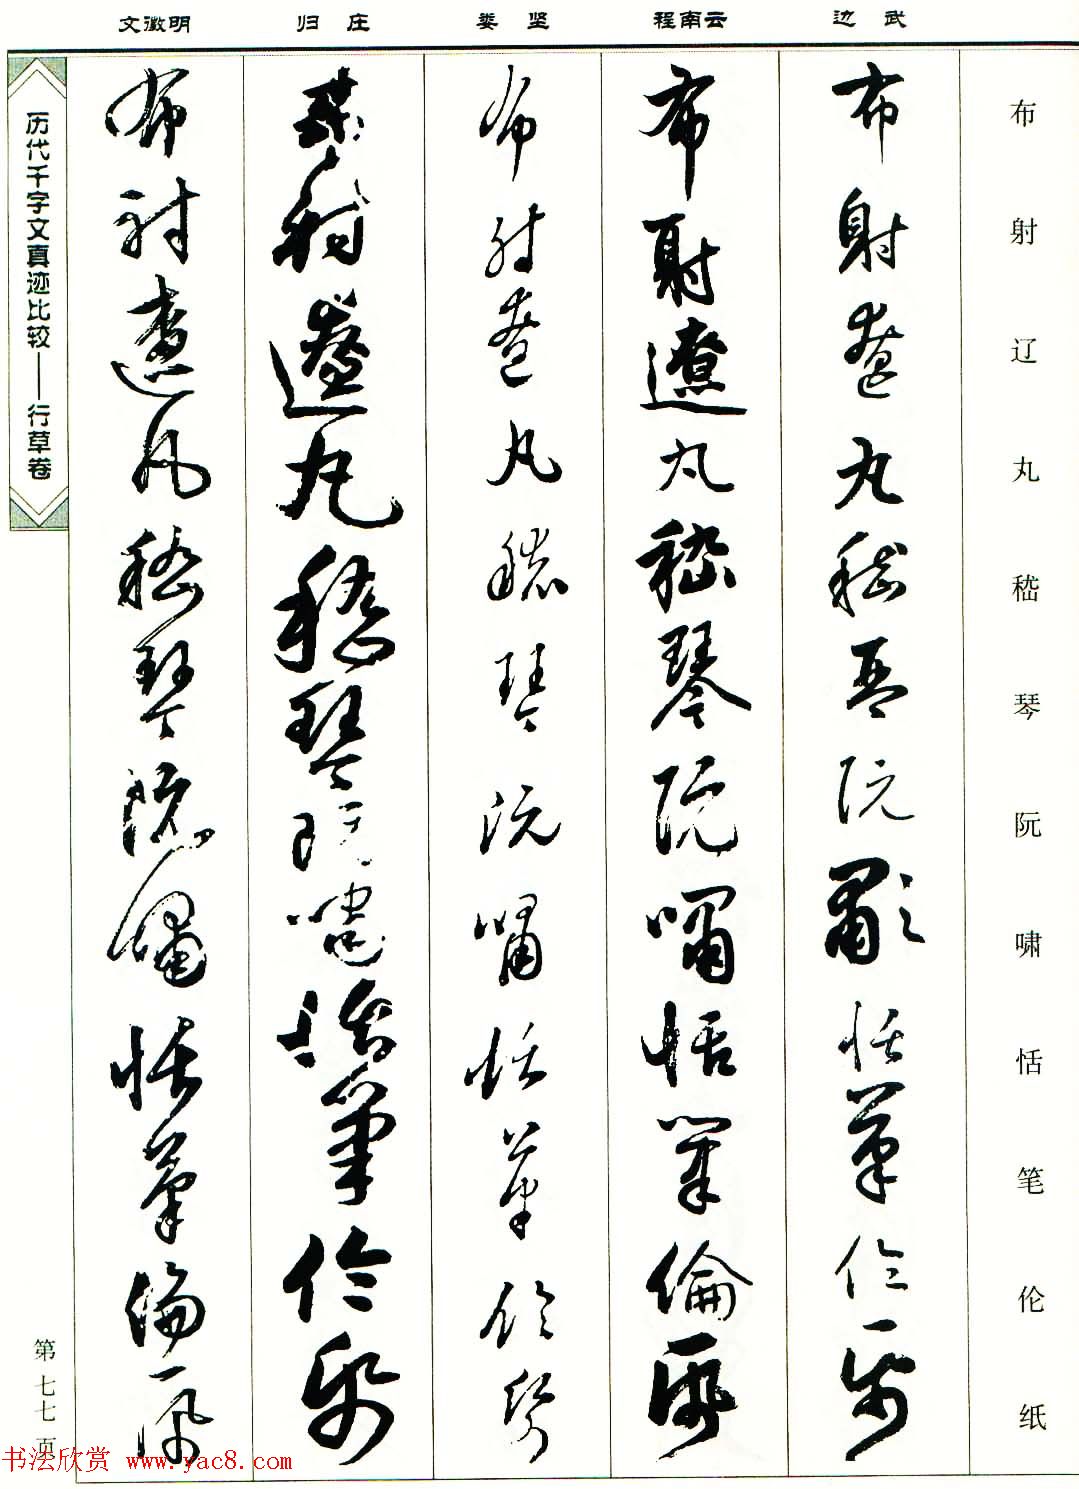 文徵明 归庄 娄坚 程南云 边武
布射辽丸嵇琴阮啸恬笔伦纸
布射遼丸嵇琴阮嘯恬筆倫紙
布射遼丸嵇琴阮嘯恬筆倫紙
布射遼丸嵇琴阮嘯恬筆倫紙
布射遼丸嵇琴阮嘯恬筆倫紙
布射遼丸嵇琴阮嘯恬筆倫紙
历代千字文真迹比较——行草卷
第七七页
书法欣赏 www.yac8.com